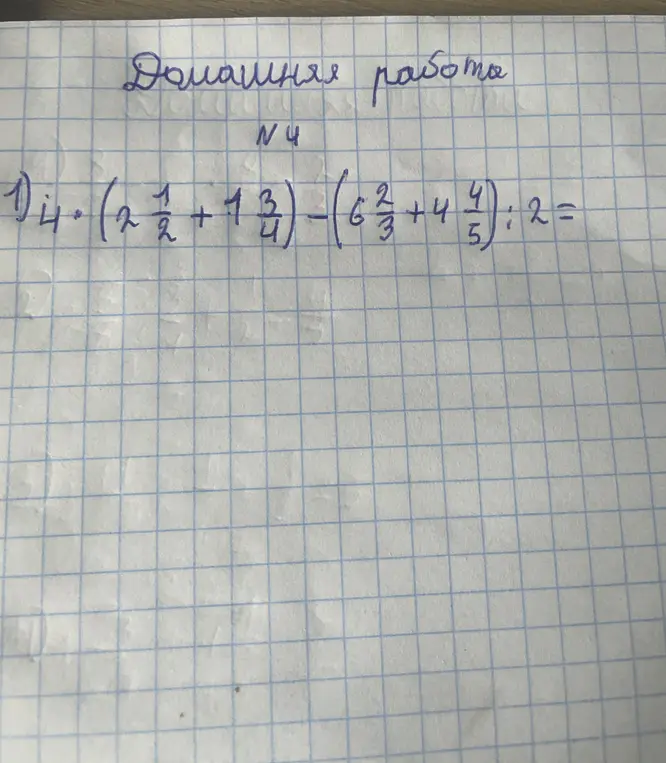 Домашняя работа
N 4
1) 4 · (2 1/2 + 1 3/4) - (6 2/3 + 4 4/5) : 2 =